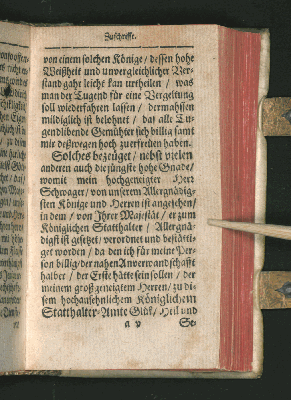 Zuschrifft.
von einem solchen Könige / dessen hohe
Weißheit und unvergleichlicher Ver-
stand gahr leicht kan urtheilen / was
man der Tugend für eine Vergeltung
soll wiederfahren lassen / dermahssen
mildiglich ist belohnet / daß alle Tu-
gendlibende Gemühter sich billig samt
mir deßwegen hoch zuerfreuen haben.
Solches bezeüget / nebst vielen
anderen auch die jüngste hohe Gnade /
womit mein hochgeneigter Herr
Schwager / von unserem Allergnädig-
sten Könige und Herren ist angesehen /
in dem / von Ihrer Majestät / er zum
Königlichen Statthalter / Allergnä-
digst ist gesetzet / verordnet und bestätti-
get worden / da den ich für meine Per-
son billig / der nahen Anverwandschafft
halber / der Erste hätte sein sollen / der
meinem großgeneigtem Herren / zu di-
sem hochansehnlichem Königlichem
Statthalter-Amte Glük / Heil und
a v Se-